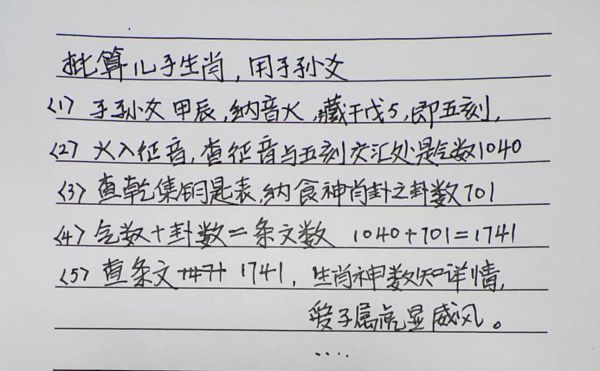 批算儿子生肖，用子孙爻
<1> 子孙爻甲辰，纳音火，藏干戊5，即五刻，
<2> 火入征音，查征音与五刻交汇处是气数1040
<3> 查乾集钥匙表，纳食神肖卦之卦数701
<4> 气数+卦数=条文数 1040+701=1741
<5> 查条文 1741，生肖神数知详情，
爱子属虎显威风。
....